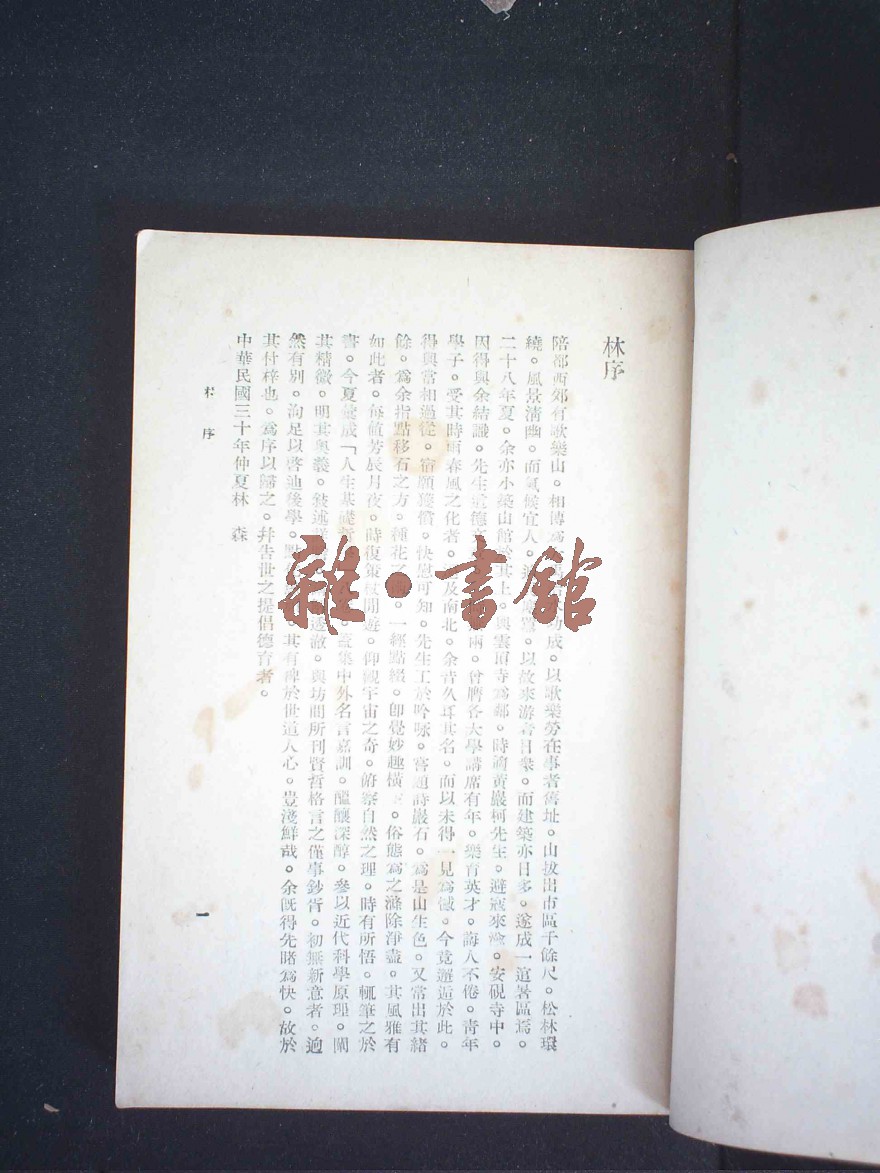 林序
陪都西郊有歌樂山。相傳為成。以歌樂勞在事者舊址。山拔出市區千餘尺。松林環
繞。風景清幽。而氣候宜人。以故來游者日衆。而建築亦日多。遂成一避暑區焉。
二十八年夏。余亦小築山館於其上。與雲頂寺為鄰。時詢黃巖柯先生。避寇來渝。安硯寺中。
因得與余結識。先生道德曾膺各大學講席有年。樂育英才。誨人不倦。青年
學子。受其時雨春風之化者。及南北。余昔久耳其名。而以未得一見為憾。今竟邂逅於此。
得與當相過從。宿願獲償。快慰可知。先生工於吟咏。喜題詩巖石。為是山生色。又常出其緒
餘。為余指點移石之方。種花之一經點綴。卽覺妙趣橫俗態為之滌除淨盡。其風雅有
如此者。每值芳辰月夜。時復策杖閒遊。仰觀宇宙之奇。俯察自然之理。時有所悟。輒筆之於
書。今夏彙成「人生基礎集中外名言嘉訓。醞釀深醇。參以近代科學原理。闡
其精微。明其奧義。敍述透澈。與坊間所刊賢哲格言之僅事鈔胥。初無新意者。逈
然有別。洵足以啓迪後學。其有裨於世道人心。豈淺鮮哉。余既得先睹為快。故於
其付梓也。為序以歸之。幷告世之提倡德育者。
中華民國三十年仲夏林　森
林序
一
雜·書館